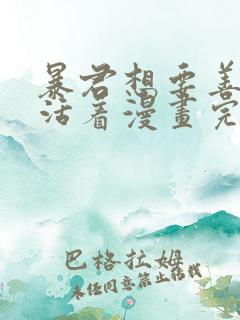 暴君想要善
活看漫畫完
巴格拉姆
未经同意禁止转载